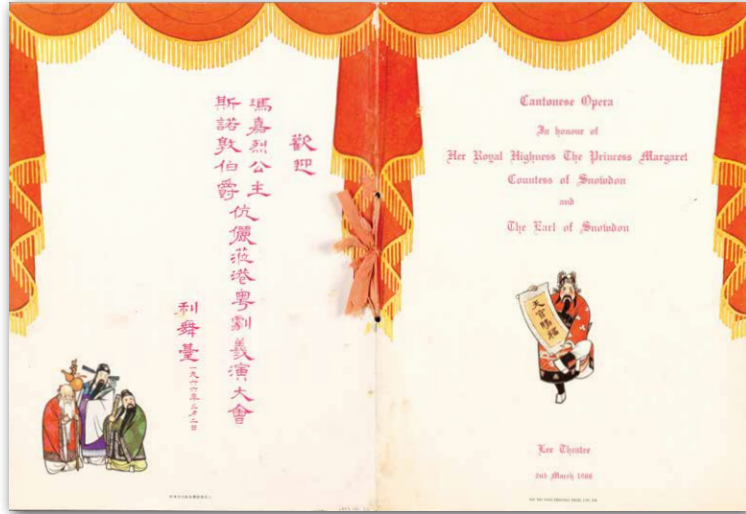 歡迎
瑪嘉烈公主
斯諾敦伯爵
伉儷蒞港粵劇義演大會
利舞臺
一九六六年三月二日
Cantonese Opera
In honour of
Her Royal Highness The Princess Margaret
Countess of Snowdon
and
The Earl of Snowdon
天官賜福
Lee Theatre
2nd March 1966